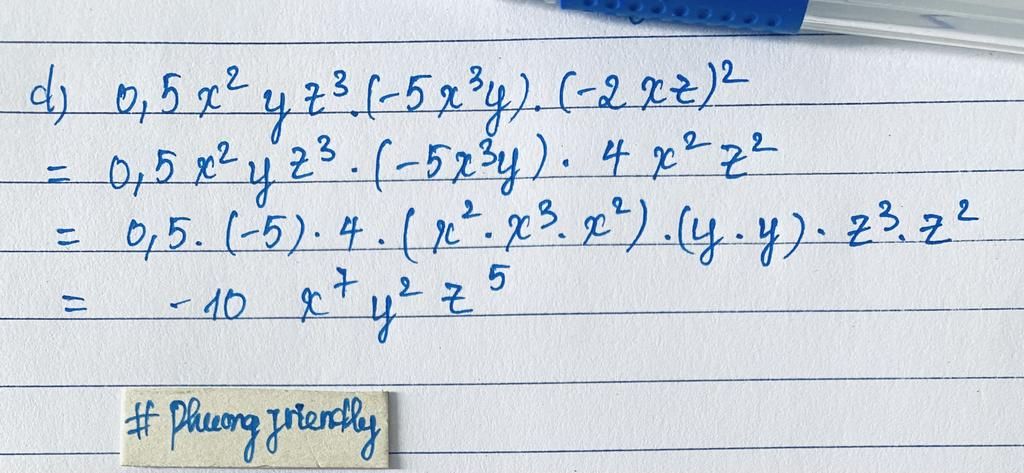 d) 0,5 x² y z³ . (-5x³y) . (-2xz)²
= 0,5 x² y z³ . (-5x³y) . 4 x² z²
= 0,5 . (-5) . 4 . (x² . x³ . x²) . (y . y) . z³ . z²
= -10 x⁷ y² z⁵
# Phuong friendly